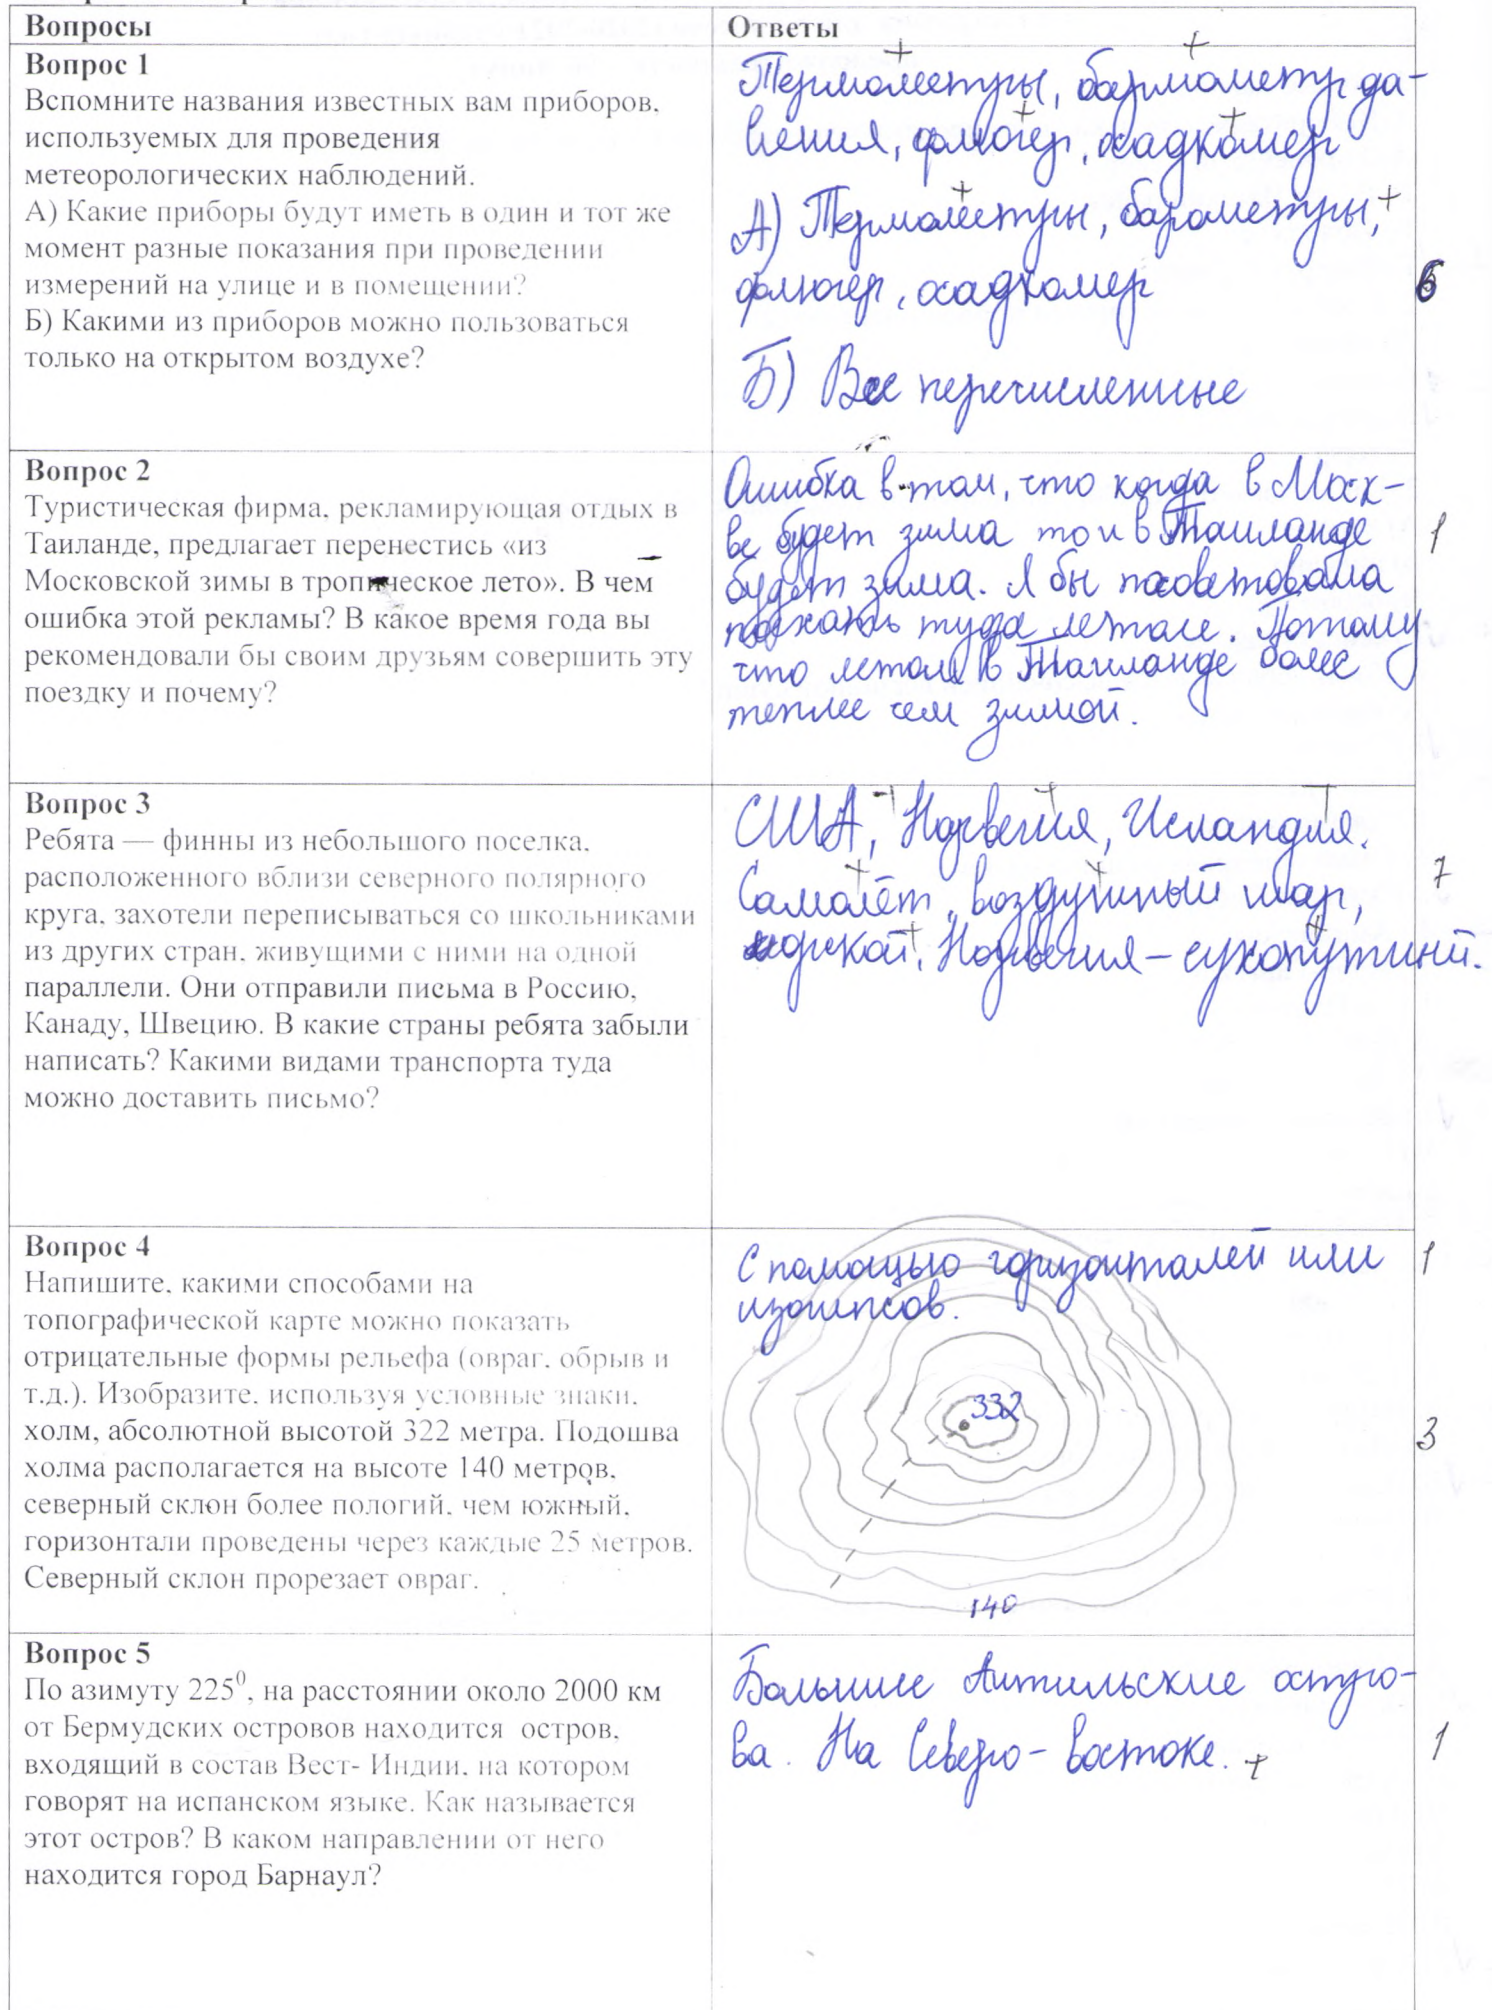 Вопросы
Ответы
Вопрос 1
Вспомните названия известных вам приборов,
используемых для проведения
метеорологических наблюдений.
А) Какие приборы будут иметь в один и тот же
момент разные показания при проведении
измерений на улице и в помещении?
Б) Какими из приборов можно пользоваться
только на открытом воздухе?
Термометры, бармометр да-
вления, флюгер, осадкомер
А) Термометры, барометры,
флюгер, осадкомер
Б) Все перечисленные
6
Вопрос 2
Туристическая фирма, рекламирующая отдых в
Таиланде, предлагает перенестись «из
Московской зимы в тропическое лето». В чем
ошибка этой рекламы? В какое время года вы
рекомендовали бы своим друзьям совершить эту
поездку и почему?
Ошибка в том, что когда в Моск-
ве будет зима то и в Таиланде
будет зима. Я бы посоветовала
поехать туда летом. Потому
что летом в Таиланде более
теплее чем зимой.
1
Вопрос 3
Ребята — финны из небольшого поселка,
расположенного вблизи северного полярного
круга, захотели переписываться со школьниками
из других стран, живущими с ними на одной
параллели. Они отправили письма в Россию,
Канаду, Швецию. В какие страны ребята забыли
написать? Какими видами транспорта туда
можно доставить письмо?
США, Норвегия, Исландия.
Самолёт, воздушный шар,
морской, Норвегия – сухопутный.
7
Вопрос 4
Напишите, какими способами на
топографической карте можно показать
отрицательные формы рельефа (овраг, обрыв и
т.д.). Изобразите, используя условные знаки,
холм, абсолютной высотой 322 метра. Подошва
холма располагается на высоте 140 метров,
северный склон более пологий, чем южный,
горизонтали проведены через каждые 25 метров.
Северный склон прорезает овраг.
С помощью горизонталей или
изогипсов.
1
332
3
140
Вопрос 5
По азимуту 225⁰, на расстоянии около 2000 км
от Бермудских островов находится остров,
входящий в состав Вест- Индии, на котором
говорят на испанском языке. Как называется
этот остров? В каком направлении от него
находится город Барнаул?
Большие Антильские остро-
ва. На Северо-востоке.
1